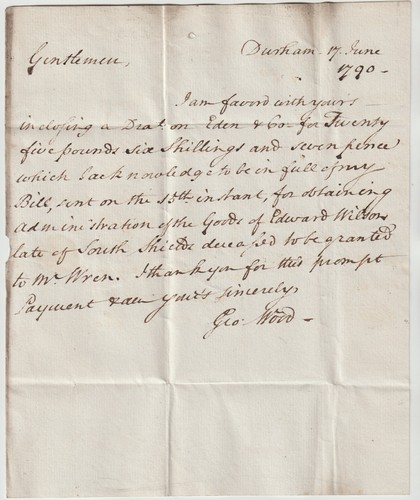 Gentlemen,
Durham 17 June
1790 -
I am favord with yours
inclosing a Dra.t on Eden & Co. for Twenty
five pounds six Shillings and seven pence
which I acknowledge to be in full of my
Bill, sent on the 15th instant, for obtaining
administration of the Goods of Edward Wilson
late of South Shields deceased to be granted
to Mr. Wren. I thank you for this prompt
Payment & am yours sincerely
Geo Wood -